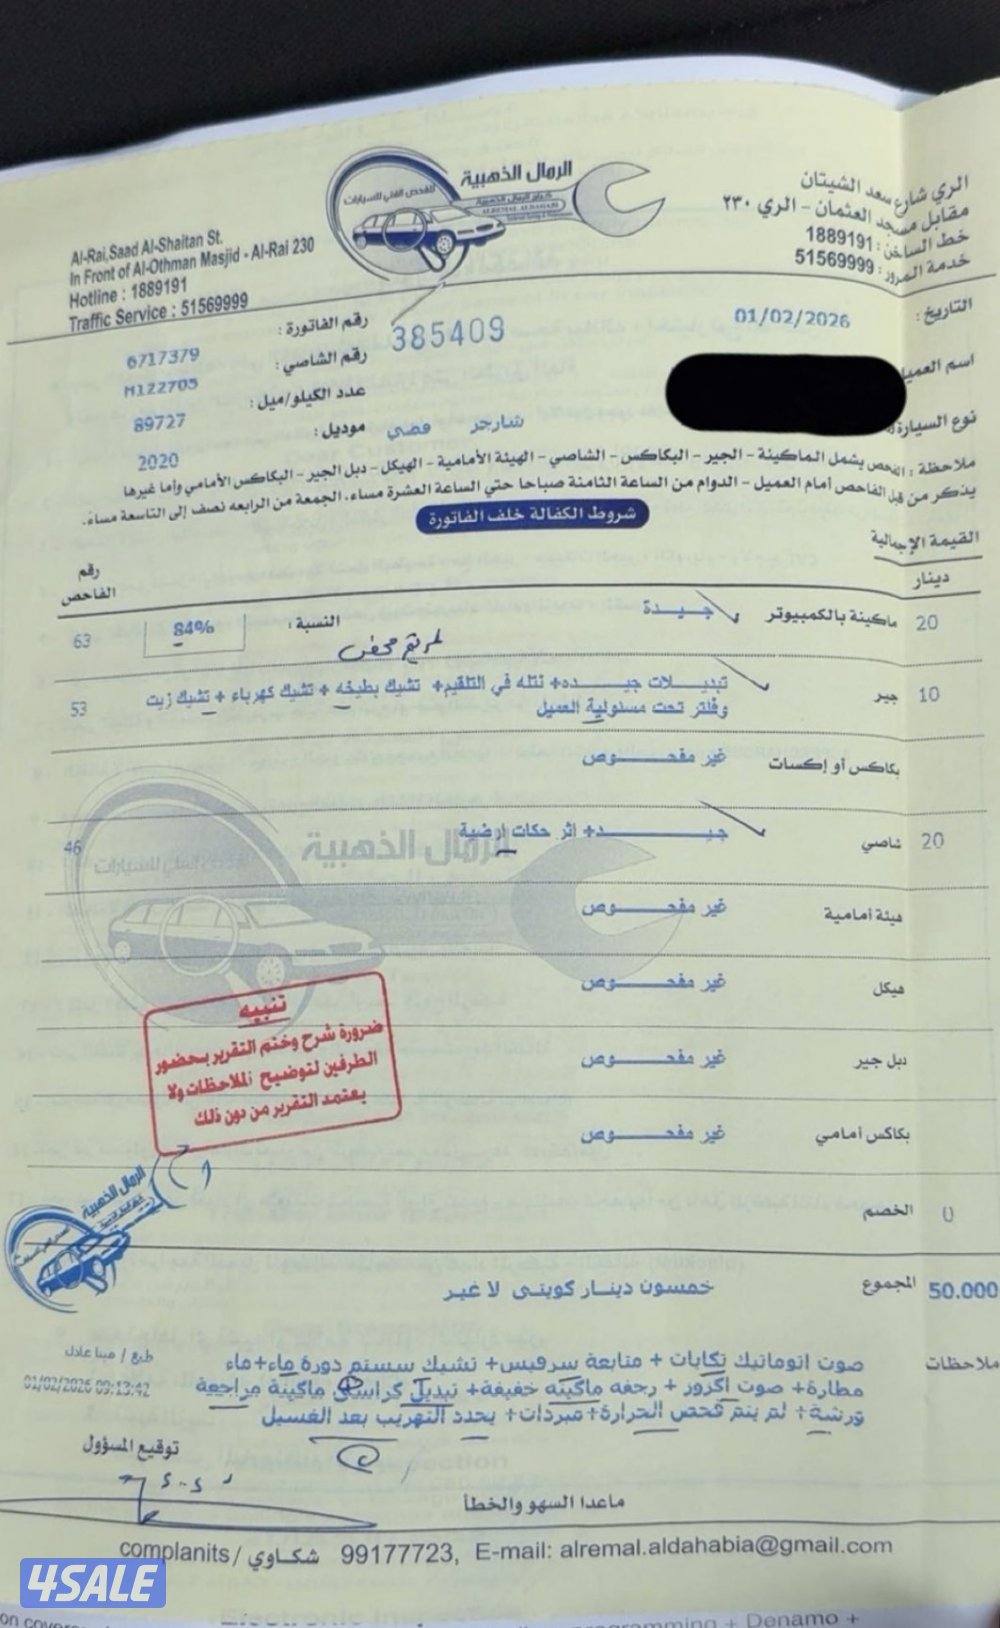 الرمال الذهبية
للفحص الفني للسيارات
كراج الرمال الذهبية
ALREMAL ALDAHABI
الري شارع سعد الشيتان
مقابل مسجد العثمان - الري ٢٣٠
خط الساخن : 1889191
خدمة المرور : 51569999
Al-Rai,Saad Al-Shaitan St.
In Front of Al-Othman Masjid - Al-Rai 230
Hotline : 1889191
Traffic Service : 51569999
التاريخ : 01/02/2026
رقم الفاتورة : 385409
اسم العميل
رقم الشاصي : 6717379
M122705
نوع السيارة
شارجر فضي
عدد الكيلو/ميل : 89727
موديل : 2020
ملاحظة : الفحص يشمل الماكينة - الجير - البكاكس - الشاصي - الهيئة الأمامية - الهيكل - دبل الجير - البكاكس الأمامي وأما غيرها
يذكر من قبل الفاحص أمام العميل - الدوام من الساعة الثامنة صباحا حتي الساعة العشرة مساء، الجمعة من الرابعه نصف إلى التاسعة مساءً.
شروط الكفالة خلف الفاتورة
القيمة الإجمالية
دينار
رقم الفاحص
20 ماكينة بالكمبيوتر جيــدة النسبة : 84% 63
10 جير تبديــلات جيــده+ نتله في التلقيم+ تشيك بطيخه + تشيك كهرباء + تشيك زيت 53
وفلتر تحت مسئولية العميل
بكاكس أو إكسات غير مفحــوص
20 شاصي جيــد+ اثر حكات ارضية 46
هيئة أمامية غير مفحــوص
هيكل غير مفحــوص
دبل جير غير مفحــوص
بكاكس أمامي غير مفحــوص
تنبيه
ضرورة شرح وختم التقرير بحضور
الطرفين لتوضيح الملاحظات ولا
يعتمد التقرير من دون ذلك
الرمال الذهبية
0 الخصم
50.000 المجموع خمسون دينــار كويتي لا غير
ملاحظات صوت اتوماتيك تكايات + متابعة سرفيس+ تشيك سستم دورة ماء+ماء
مطارة+ صوت اكزوز + رجفه ماكينه خفيفة+ تبديل كراسي ماكينة مراجعة
ورشة+ لم يتم فحص الحرارة+مبردات+ يحدد التهريب بعد الغسيل
طبع / مينا عادل
01/02/2026 09:13:42
توقيع المسؤول
ماعدا السهو والخطأ
complanits / شكاوي 99177723, E-mail: alremal.aldahabia@gmail.com
4SALE